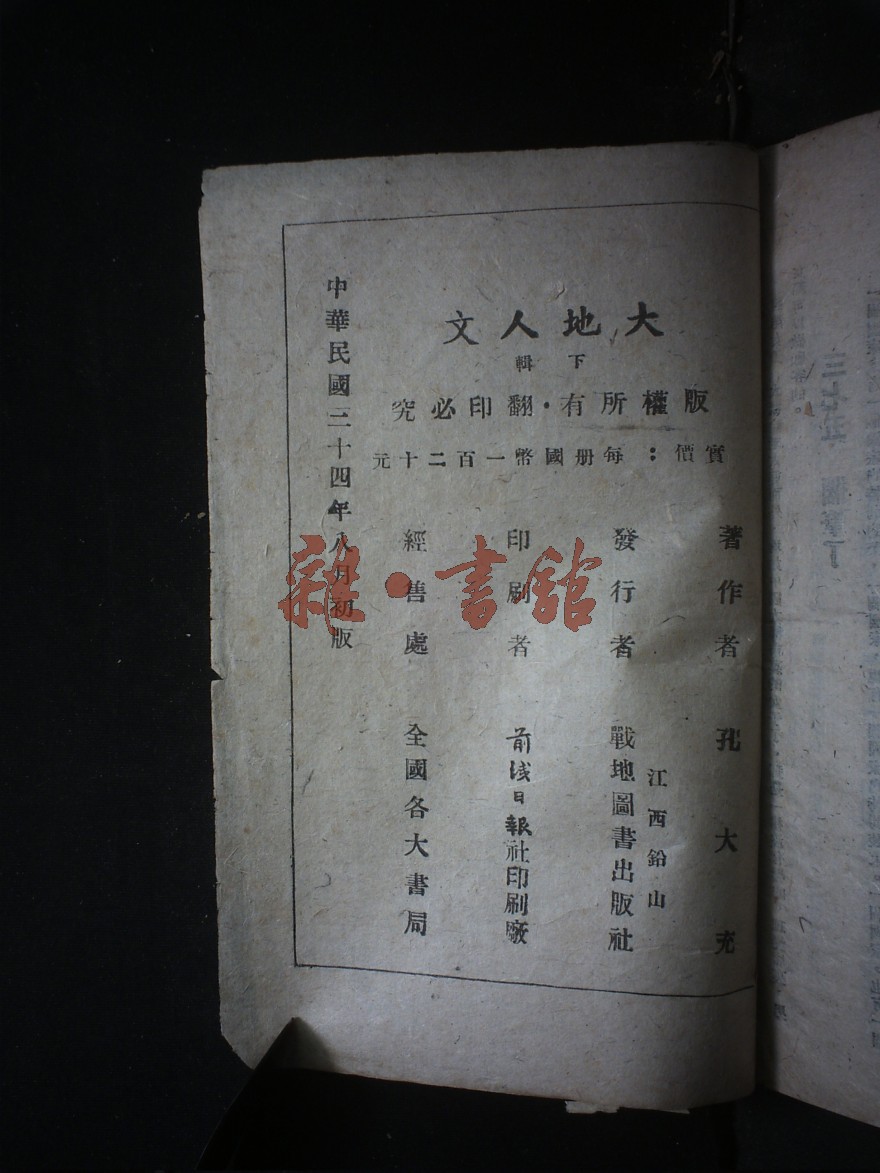 大地人文
下輯
版權所有·翻印必究
實價：每册國幣一百二十元
著作者 孔大充
發行者 江西鉛山
戰地圖書出版社
印刷者 前綫日報社印刷廠
經售處 全國各大書局
中華民國三十四年八月初版
雜·書館